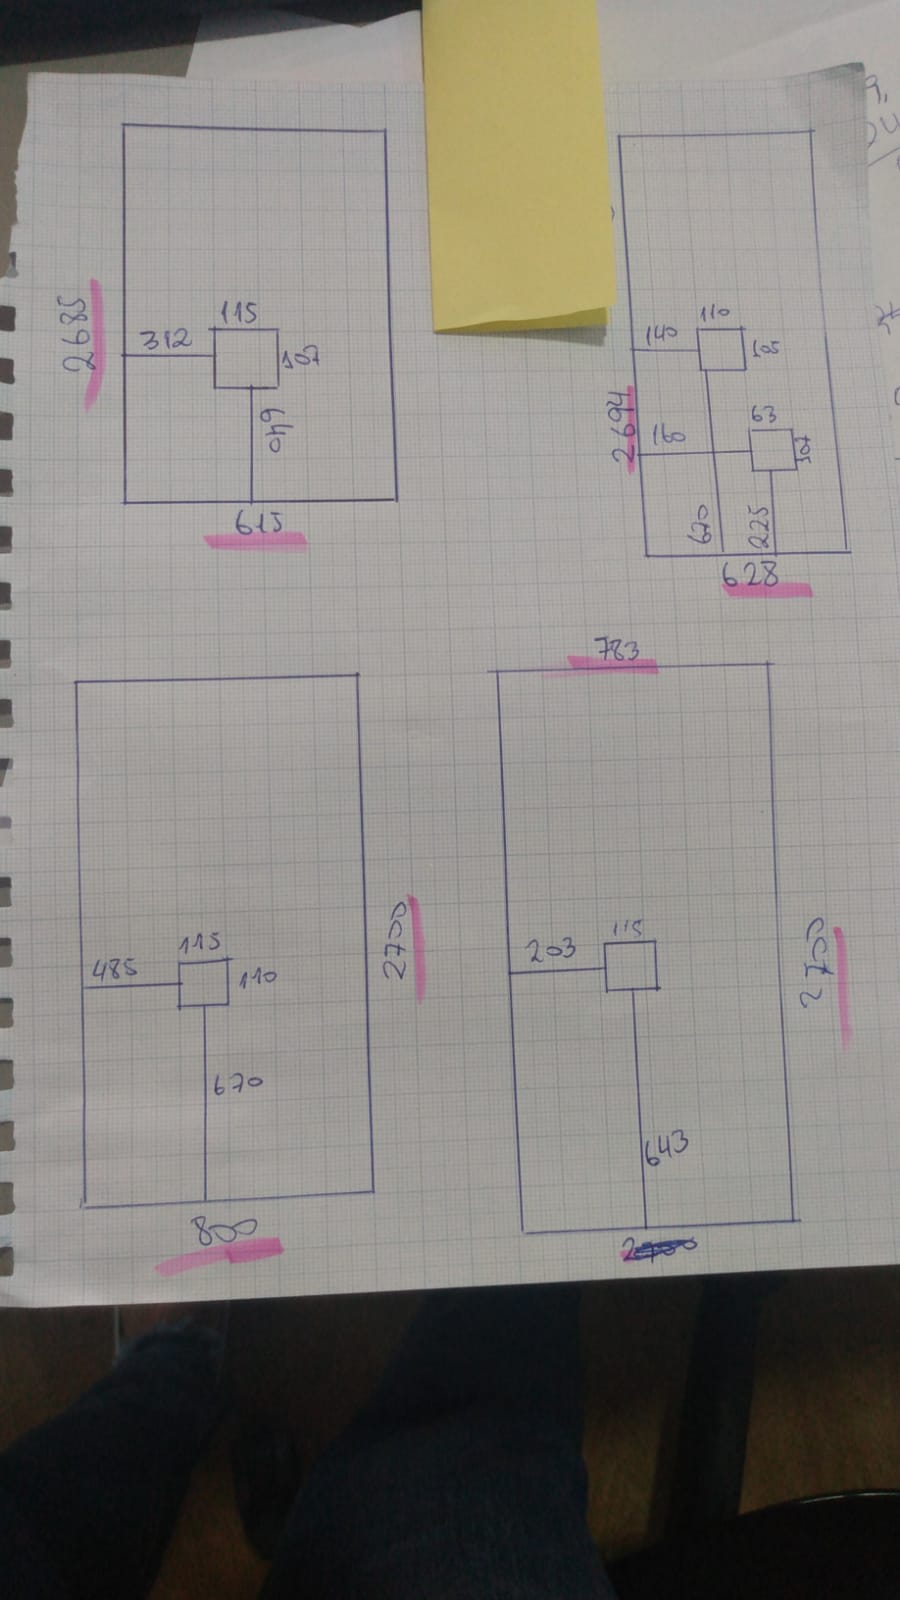 2685
115
312
107
640
615
110
140
105
2694
63
160
107
620
225
628
115
485
110
2700
670
800
783
115
203
2700
643